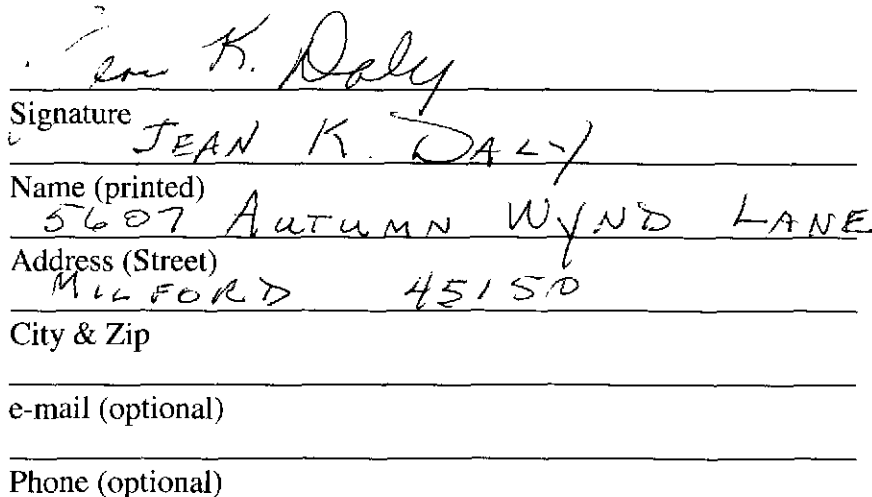 Jean K. Daly
Signature
JEAN K. DALY
Name (printed)
5607 AUTUMN WYND LANE
Address (Street)
MILFORD 45150
City & Zip
e-mail (optional)
Phone (optional)